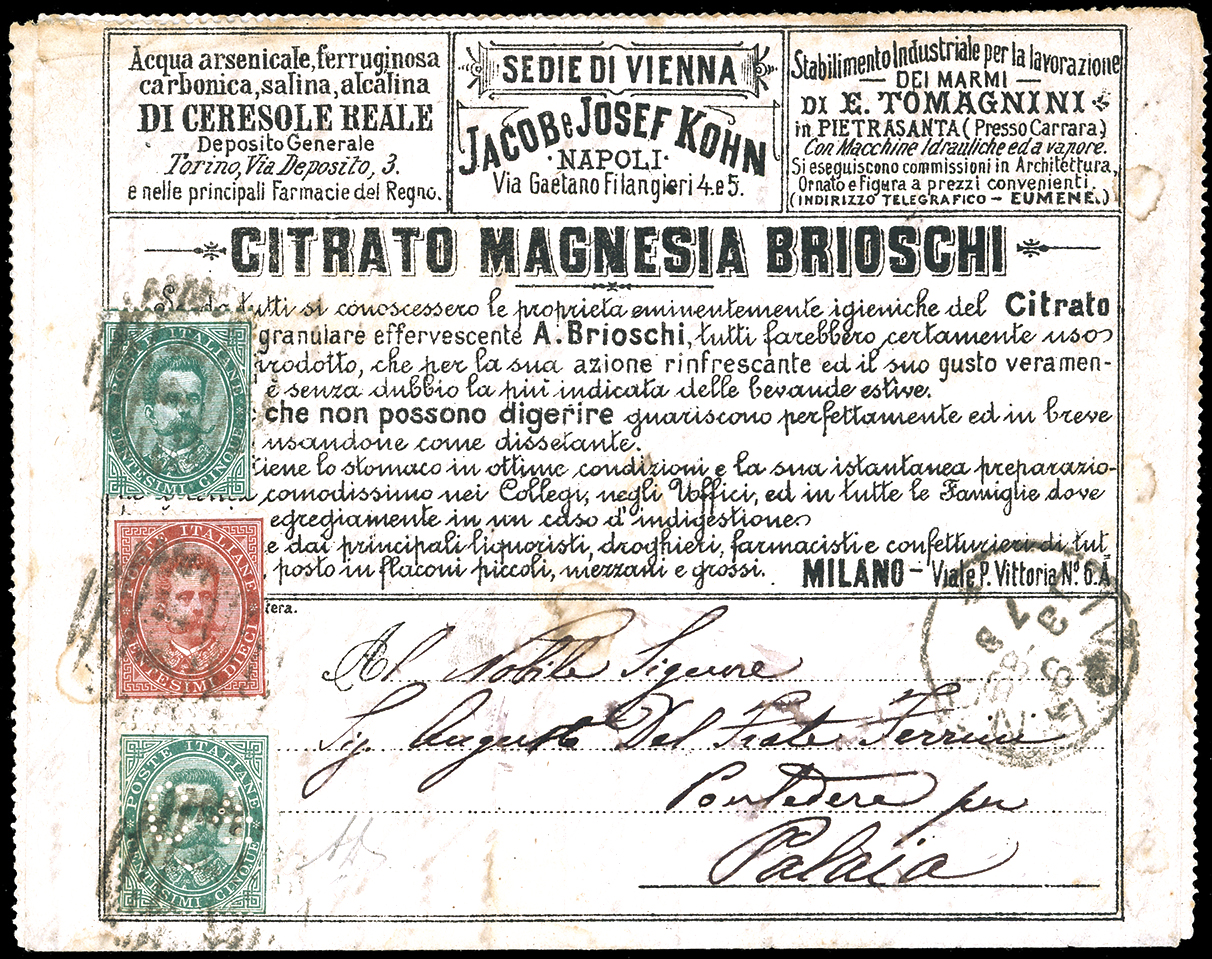 Acqua arsenicale, ferruginosa
carbonica, salina, alcalina
DI CERESOLE REALE
Deposito Generale
Torino, Via Deposito, 3.
e nelle principali Farmacie del Regno.
SEDIE DI VIENNA
JACOB e JOSEF KOHN
·NAPOLI·
Via Gaetano Filangieri 4 e 5.
Stabilimento Industriale per la lavorazione
DEI MARMI
DI E. TOMAGNINI
in PIETRASANTA (Presso Carrara)
Con Macchine Idrauliche ed a vapore.
Si eseguiscono commissioni in Architettura,
Ornato e Figura a prezzi convenienti.
(INDIRIZZO TELEGRAFICO - EUMENE.)
CITRATO MAGNESIA BRIOSCHI
Se da tutti si conoscessero le proprietà eminentemente igieniche del Citrato
granulare effervescente A. Brioschi, tutti farebbero certamente uso
rodotto, che per la sua azione rinfrescante ed il suo gusto veramen-
e senza dubbio la più indicata delle bevande estive.
che non possono digerire guariscono perfettamente ed in breve
usandone come dissetante.
tiene lo stomaco in ottime condizioni e la sua istantanea preparazio-
comodissimo nei Collegi, negli Uffici, ed in tutte le Famiglie dove
egregiamente in un caso d'indigestione
e dai principali liquoristi, droghieri, farmacisti e confetturieri di tut-
posto in flaconi piccoli, mezzani e grossi. MILANO - Viale P. Vittoria Nº 6.A
tera.
POSTE ITALIANE
CENTESIMI CINQUE
POSTE ITALIANE
CENTESIMI DIECI
POSTE ITALIANE
CENTESIMI CINQUE
Al Nobile Signore
Sig. Augusto Del Frate Terrini
Pontedera per
Palaia